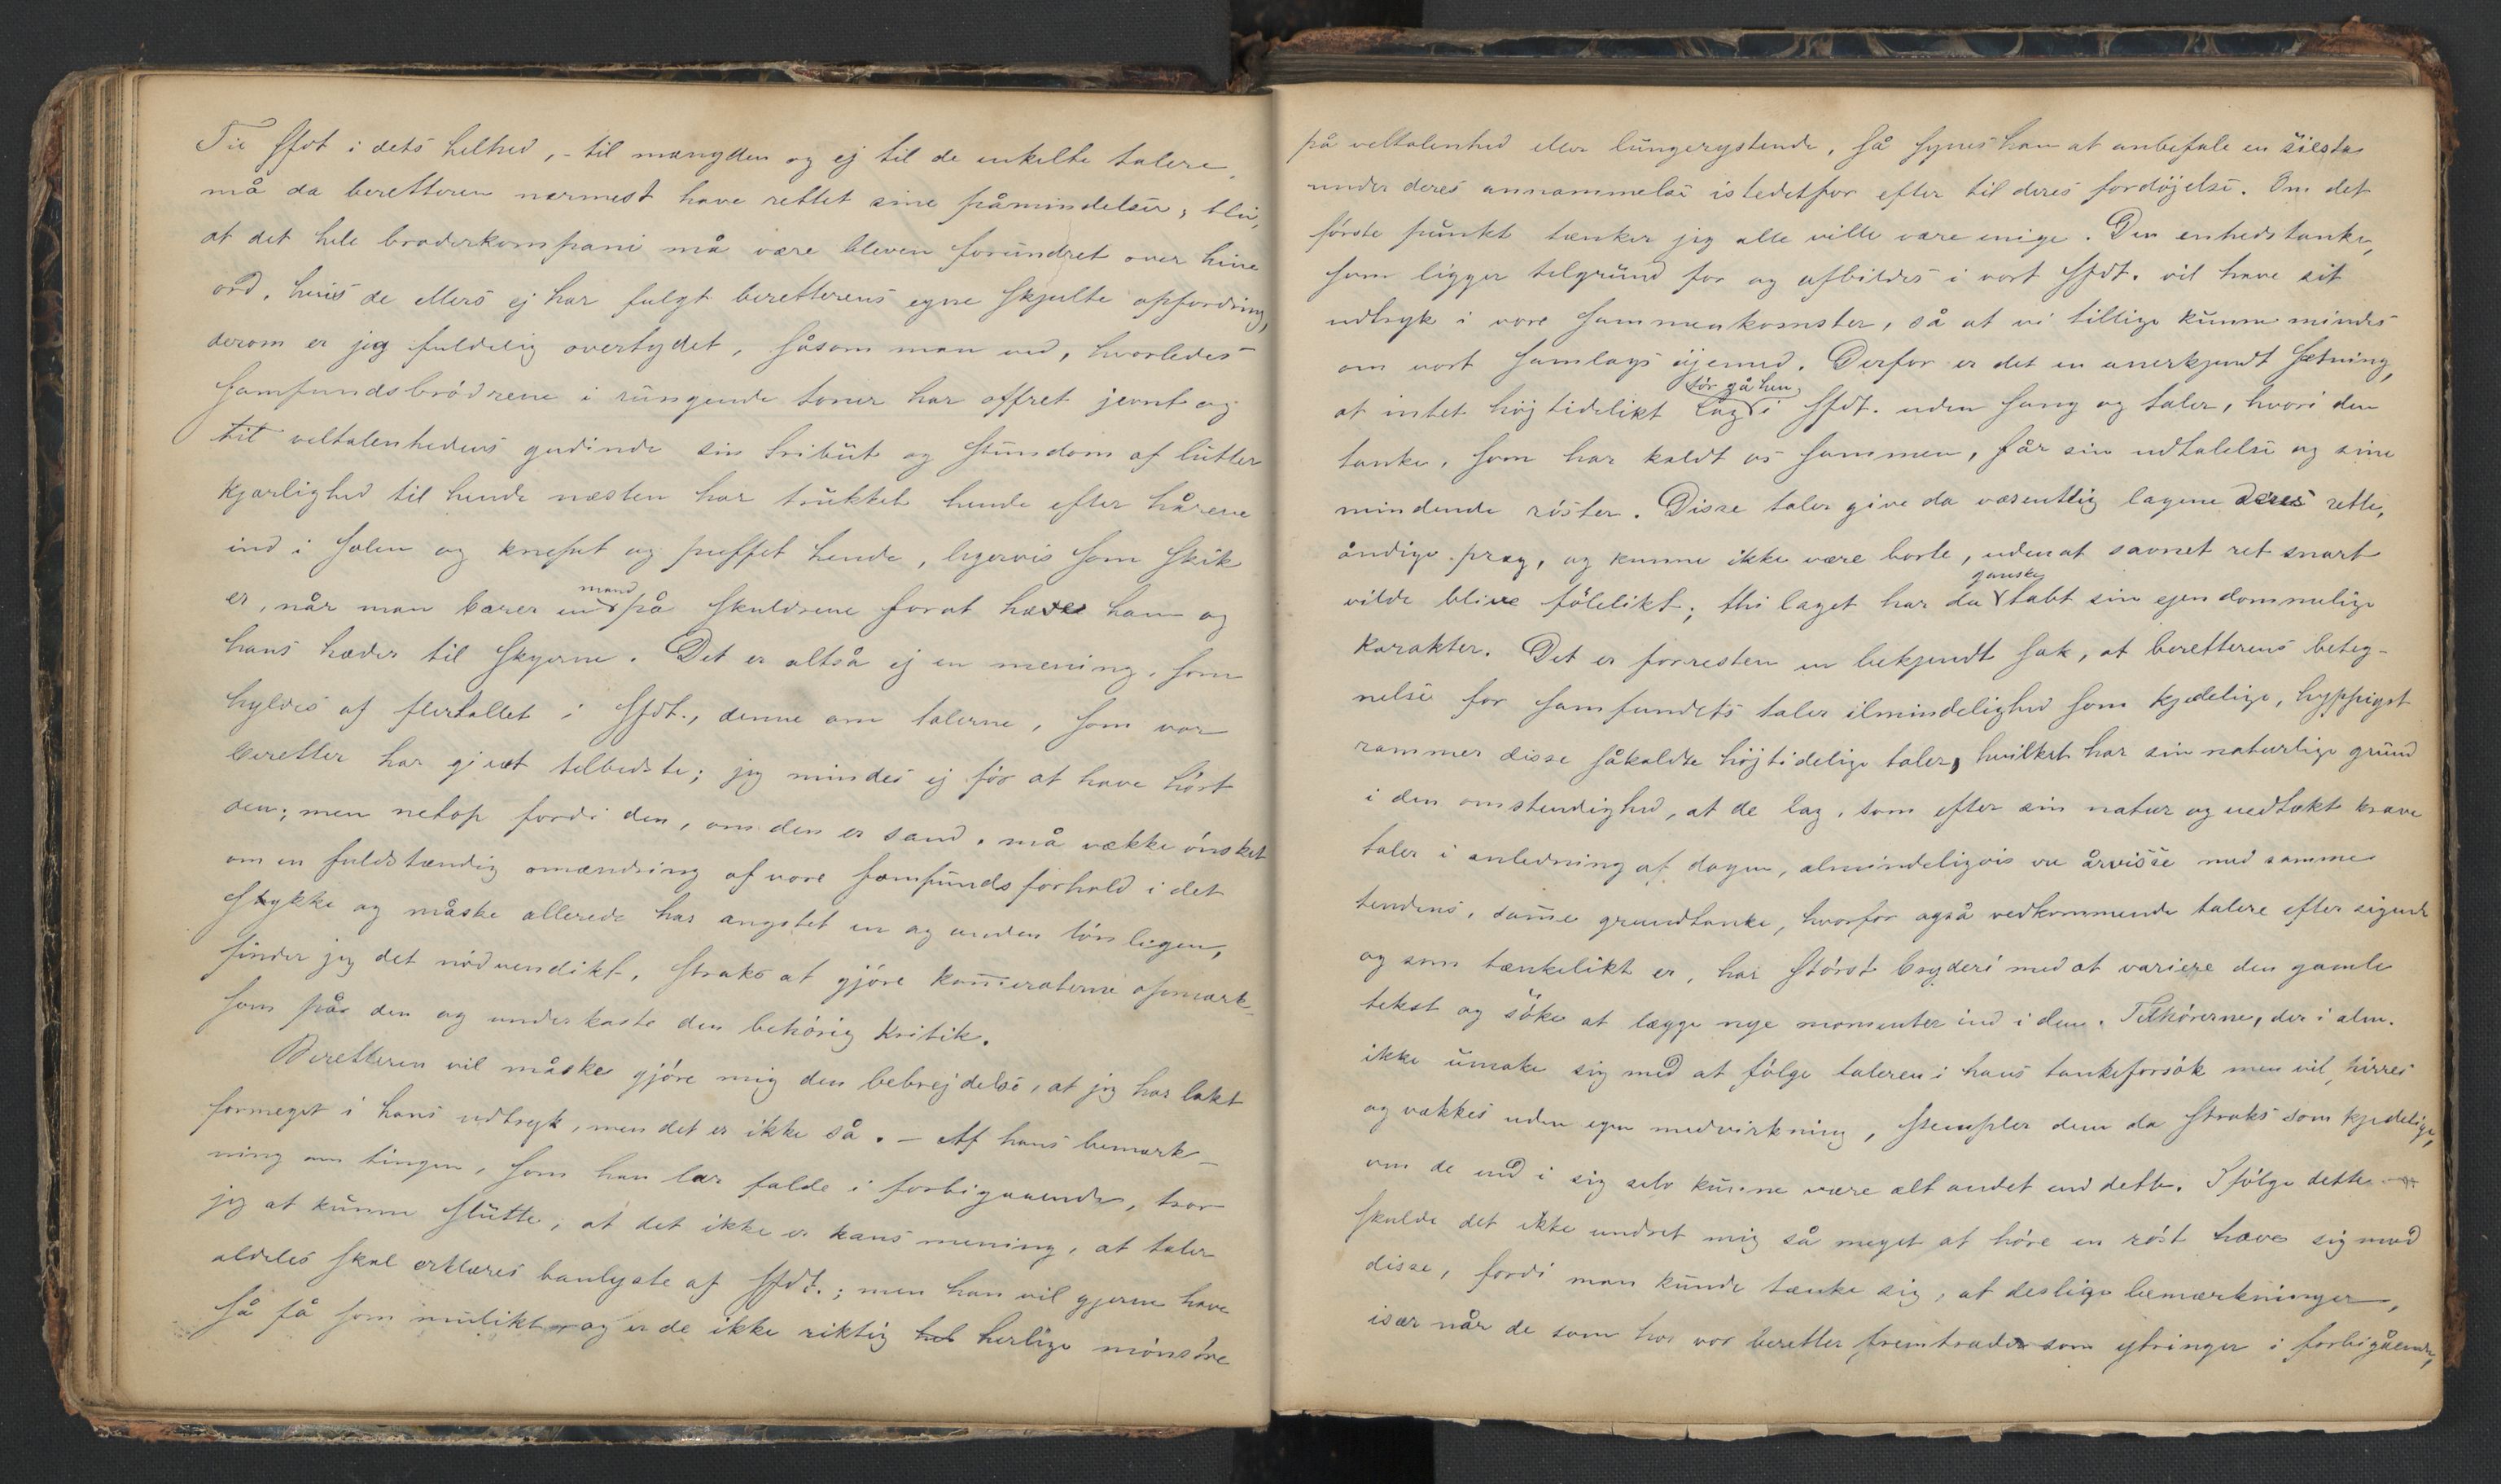 Til Sfdt i dets helhed, - til mængden og ej til de enkelte talere,
må da beretteren nærmest have rettet sine påmindelser; thi,
at det hele broderkompani må være bleven forundret over hine
ord, hvis de ellers ej har fulgt beretterens egne skjulte opfordring,
derom er jeg fuldelig overtydet, såsom man ved, hvorledes
samfundsbrödrene i rungende toner har offret jevnt og
til veltalenhedens gudinde sin tribut og stundom af lutter
kjærlighed til hende næsten har trukket hende efter hårene
ind i salen og knepet og puffet hende, ligervis som skik
er, når man bærer en mand på skuldrene forat hæve ham og
hans hæder til skyerne. Det er altså ej en mening, som
hyldes af flertallet i Sfdt., denne om talerne, som vor
beretter har givet tilbedste; jeg mindes ej för at have hört
den; men netop fordi den, om den er sand, må vække önsket
om en fuldstændig omændring af vore samfundsforhold i det
stykke og måske allerede har ængstet en og anden lönligen,
finder jeg det nödvendikt, straks at gjöre kameraterne opmærk-
som på den og underkaste den behörig kritik.
Beretteren vil måske gjöre mig den bebrejdelse, at jeg har lakt
formeget i hans udtryk, men det er ikke så. - Af hans bemærk-
ning om tingen, som han lar falde i forbigaaende, tror
jeg at kunne slutte, at det ikke er hans mening, at taler
aldeles skal erklæres banlyste af Sfdt.; men han vil gjerne have
så få som mulikt og er de ikke riktig herlige mönstre
på veltalenhed eller lungerystende, så synes han at anbefale en siesta
under deres annammelse istedetfor efter til deres fordöjelse. Om det
förste punkt tænker jeg alle ville være enige. Den enhedstanke,
som ligger tilgrund for og afbildes i vort Sfdt. vil have sit
udtryk i vore sammenkomster, så at vi tillige kunne mindes
om vort samlags öjemed. Derfor er det en anerkjendt sætning,
at intet höjtidelikt lag tör gå hen i Sfdt. uden sang og taler, hvori den
tanke, som har kaldt os sammen, får sin udtalelse og sine
mindende röster. Disse taler give da væsentlig lagene deres rette,
åndige præg, og kunne ikke være borte, uden at savnet ret snart
vilde blive fölelikt; thi laget har da ganske tabt sin ejendommelige
karakter. Det er forresten en bekjendt sak, at beretterens beteg-
nelse for samfundets taler ialmindelighed som kjedelige, hyppigst
rammer disse såkaldte höjtidelige taler, hvilket har sin naturlige grund
i den omstendighed, at de lag, som efter sin natur og vedtekt kræve
taler i anledning af dagen, almindeligvis ere årvisse med samme
tendens, samme grundtanke, hvorfor også vedkommende talere efter sigende
og som tænkelikt er, har störst bryderi med at variere den gamle
tekst og söke at lægge nye momenter ind i den. Tilhörerne, der i alm.
ikke umake sig med at fölge taleren i hans tankeforsök men vil pirres
og vækkes uden egen medvirkning, stempler dem da straks som kjedelige,
om de end i sig selv kunne være alt andet end dette. Ifölge dette
skulde det ikke undret mig så meget at höre en röst hæve sig mod
disse, fordi man kunde tænke sig, at deslige bemærkninger,
især når de som hos vor beretter fremtræder som ytringer i forbigående,